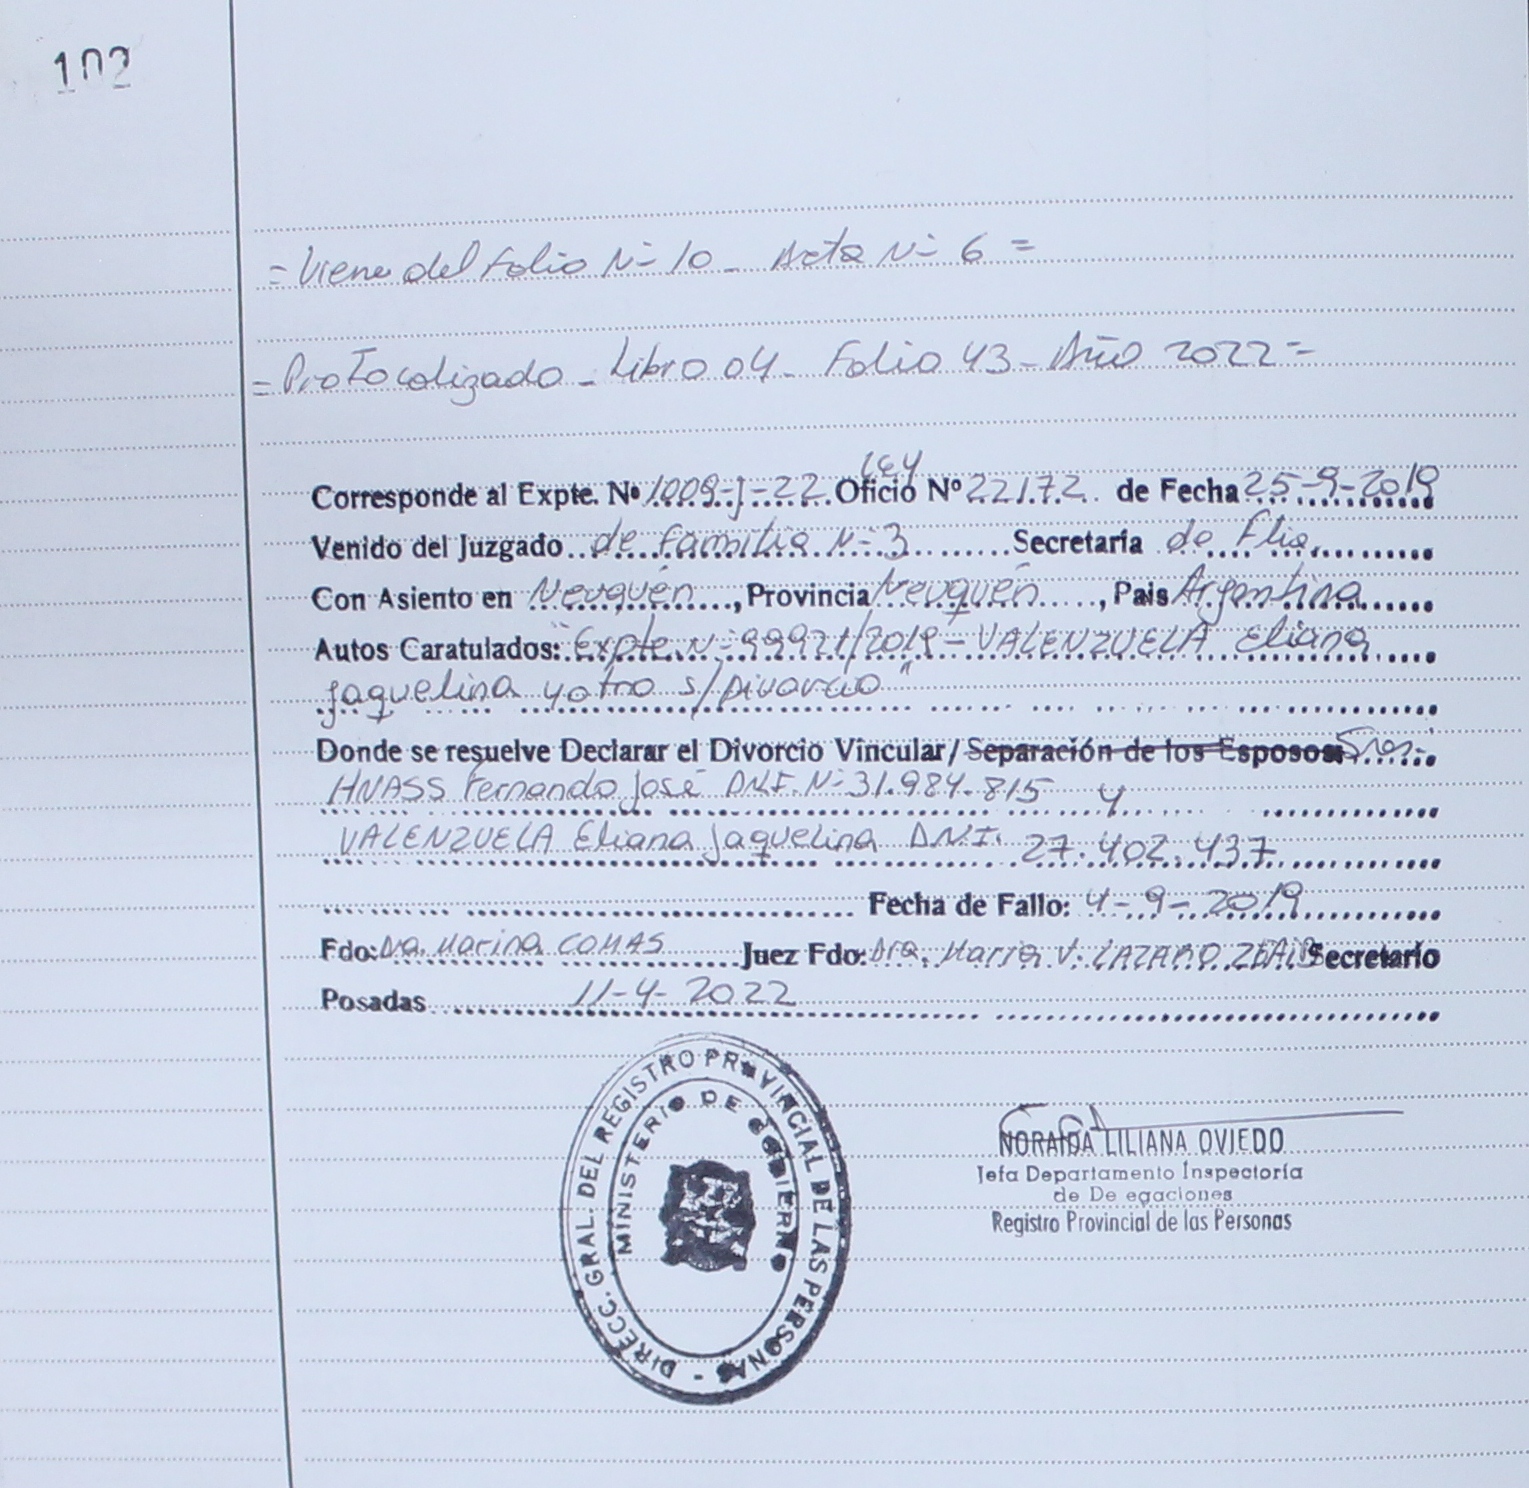 102
= Viene del Folio Nº 10 - Acta Nº 6 =
= Protocolizado - Libro 04 - Folio 43 - Año 2022 =
Ley
Corresponde al Expte. Nº 1009-J-22 Oficio Nº 22172 de Fecha 25-9-2019
Venido del Juzgado de Familia Nº 3 Secretaría de Flia.
Con Asiento en Neuquén, Provincia Neuquén, Pais Argentina
Autos Caratulados: "Expte Nº 99921/2019 - VALENZUELA Eliana
Jaquelina y otro s/ Divorcio"
Donde se resuelve Declarar el Divorcio Vincular/Separación de los Esposos Sres.:
HNASS Fernando José D.N.I. Nº 31.984.815 y
VALENZUELA Eliana Jaquelina D.N.I. 27.402.437
Fecha de Fallo: 4-9-2019
Fdo: Dra. Marina COMAS Juez Fdo: Dra. María V. LAZARO Secretario
Posadas 11-4-2022
DIRECC. GRAL. DEL REGISTRO PROVINCIAL DE LAS PERSONAS -
MINISTERIO DE GOBIERNO
NORAIDA LILIANA OVIEDO
Jefa Departamento Inspectoría
de De egaciones
Registro Provincial de las Personas